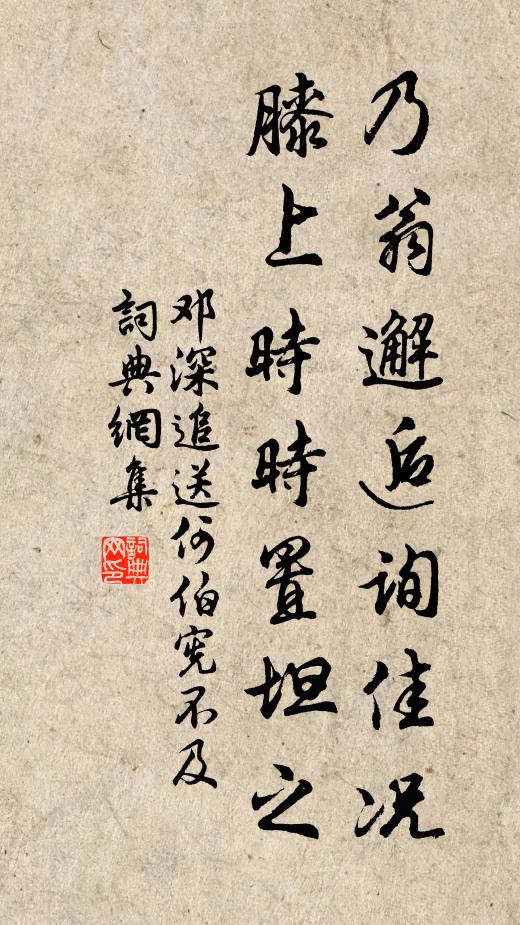 乃翁邂逅詢佳况
膝上時時置坦之
邓深追送何伯宪不及
詞典網集
詞典网印